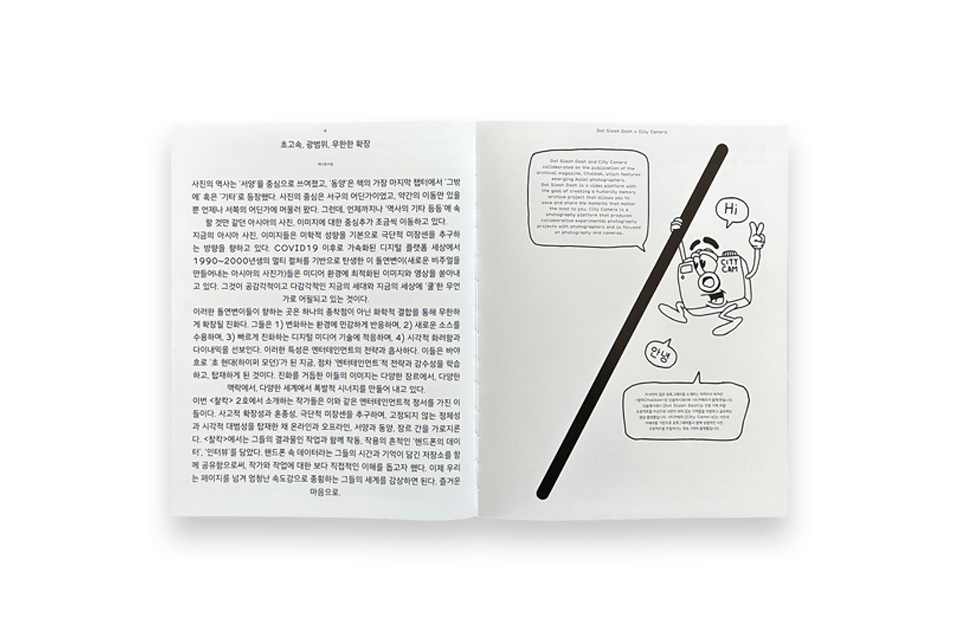 4
초고속, 광범위, 무한한 확장
사진의 역사는 '서양'을 중심으로 쓰여졌고, '동양'은 책의 가장 마지막 챕터에서 '그밖
에' 혹은 '기타'로 등장했다. 사진의 중심은 서구의 어딘가이었고, 약간의 이동만 있을
뿐 언제나 서쪽의 어딘가에 머물러 왔다. 그런데, 언제까지나 '역사의 기타 등등'에 속
할 것만 같던 아시아의 사진, 이미지에 대한 중심추가 조금씩 이동하고 있다.
지금의 아시아 사진, 이미지들은 미학적 성향을 기본으로 극단적 미장센을 추구하
는 방향을 향하고 있다. COVID19 이후로 가속화된 디지털 플랫폼 세상에서
1990~2000년생의 멀티 컬처를 기반으로 탄생한 이 돌연변이(새로운 비주얼을
만들어내는 아시아의 사진가)들은 미디어 환경에 최적화된 이미지와 영상을 쏟아내
고 있다. 그것이 공감각적이고 다감각적인 지금의 세대와 지금의 세상에 '쿨'한 무언
가로 어필되고 있는 것이다.
이러한 돌연변이들이 향하는 곳은 하나의 종착점이 아닌 화학적 결합을 통해 무한하
게 확장될 진화다. 그들은 1) 변화하는 환경에 민감하게 반응하며, 2) 새로운 소스를
수용하며, 3) 빠르게 진화하는 디지털 미디어 기술에 적응하며, 4) 시각적 화려함과
다이내믹을 선보인다. 이러한 특성은 엔터테인먼트의 전략과 흡사하다. 이들은 바야
흐로 '초 현대(하이퍼 모던)'가 된 지금, 점차 '엔터테인먼트'적 전략과 감수성을 학습
하고, 탑재하게 된 것이다. 진화를 거듭한 이들의 이미지는 다양한 장르에서, 다양한
맥락에서, 다양한 세계에서 폭발적 시너지를 만들어 내고 있다.
이번 <찰칵> 2호에서 소개하는 작가들은 이와 같은 엔터테인먼트적 정서를 가진 이
들이다. 사고적 확장성과 혼종성, 극단적 미장센을 추구하며, 고정되지 않는 정체성
과 시각적 대범성을 탑재한 채 온라인과 오프라인, 서양과 동양, 장르 간을 가로지른
다. <찰칵>에서는 그들의 결과물인 작업과 함께 작동, 작용의 흔적인 '핸드폰의 데이
터', '인터뷰'를 담았다. 핸드폰 속 데이터라는 그들의 시간과 기억이 담긴 저장소를 함
께 공유함으로써, 작가와 작업에 대한 보다 직접적인 이해를 돕고자 했다. 이제 우리
는 페이지를 넘겨 엄청난 속도감으로 종횡하는 그들의 세계를 감상하면 된다. 즐거운
마음으로.
Dot Slash Dash x City Camera
Dot Slash Dash and City Camera
collaborated on the publication of the
archival magazine, Chalkak, which features
emerging Asian photographers.
Dot Slash Dash is a video platform with
the goal of creating a humanity memory
archive project that allows you to
save and share the moments that matter
the most to you. City Camera is a
photography platform that produces
collaborative experimental photography
projects with photographers and is focused
on photography and cameras.
Hi
CITY
CAM
안녕